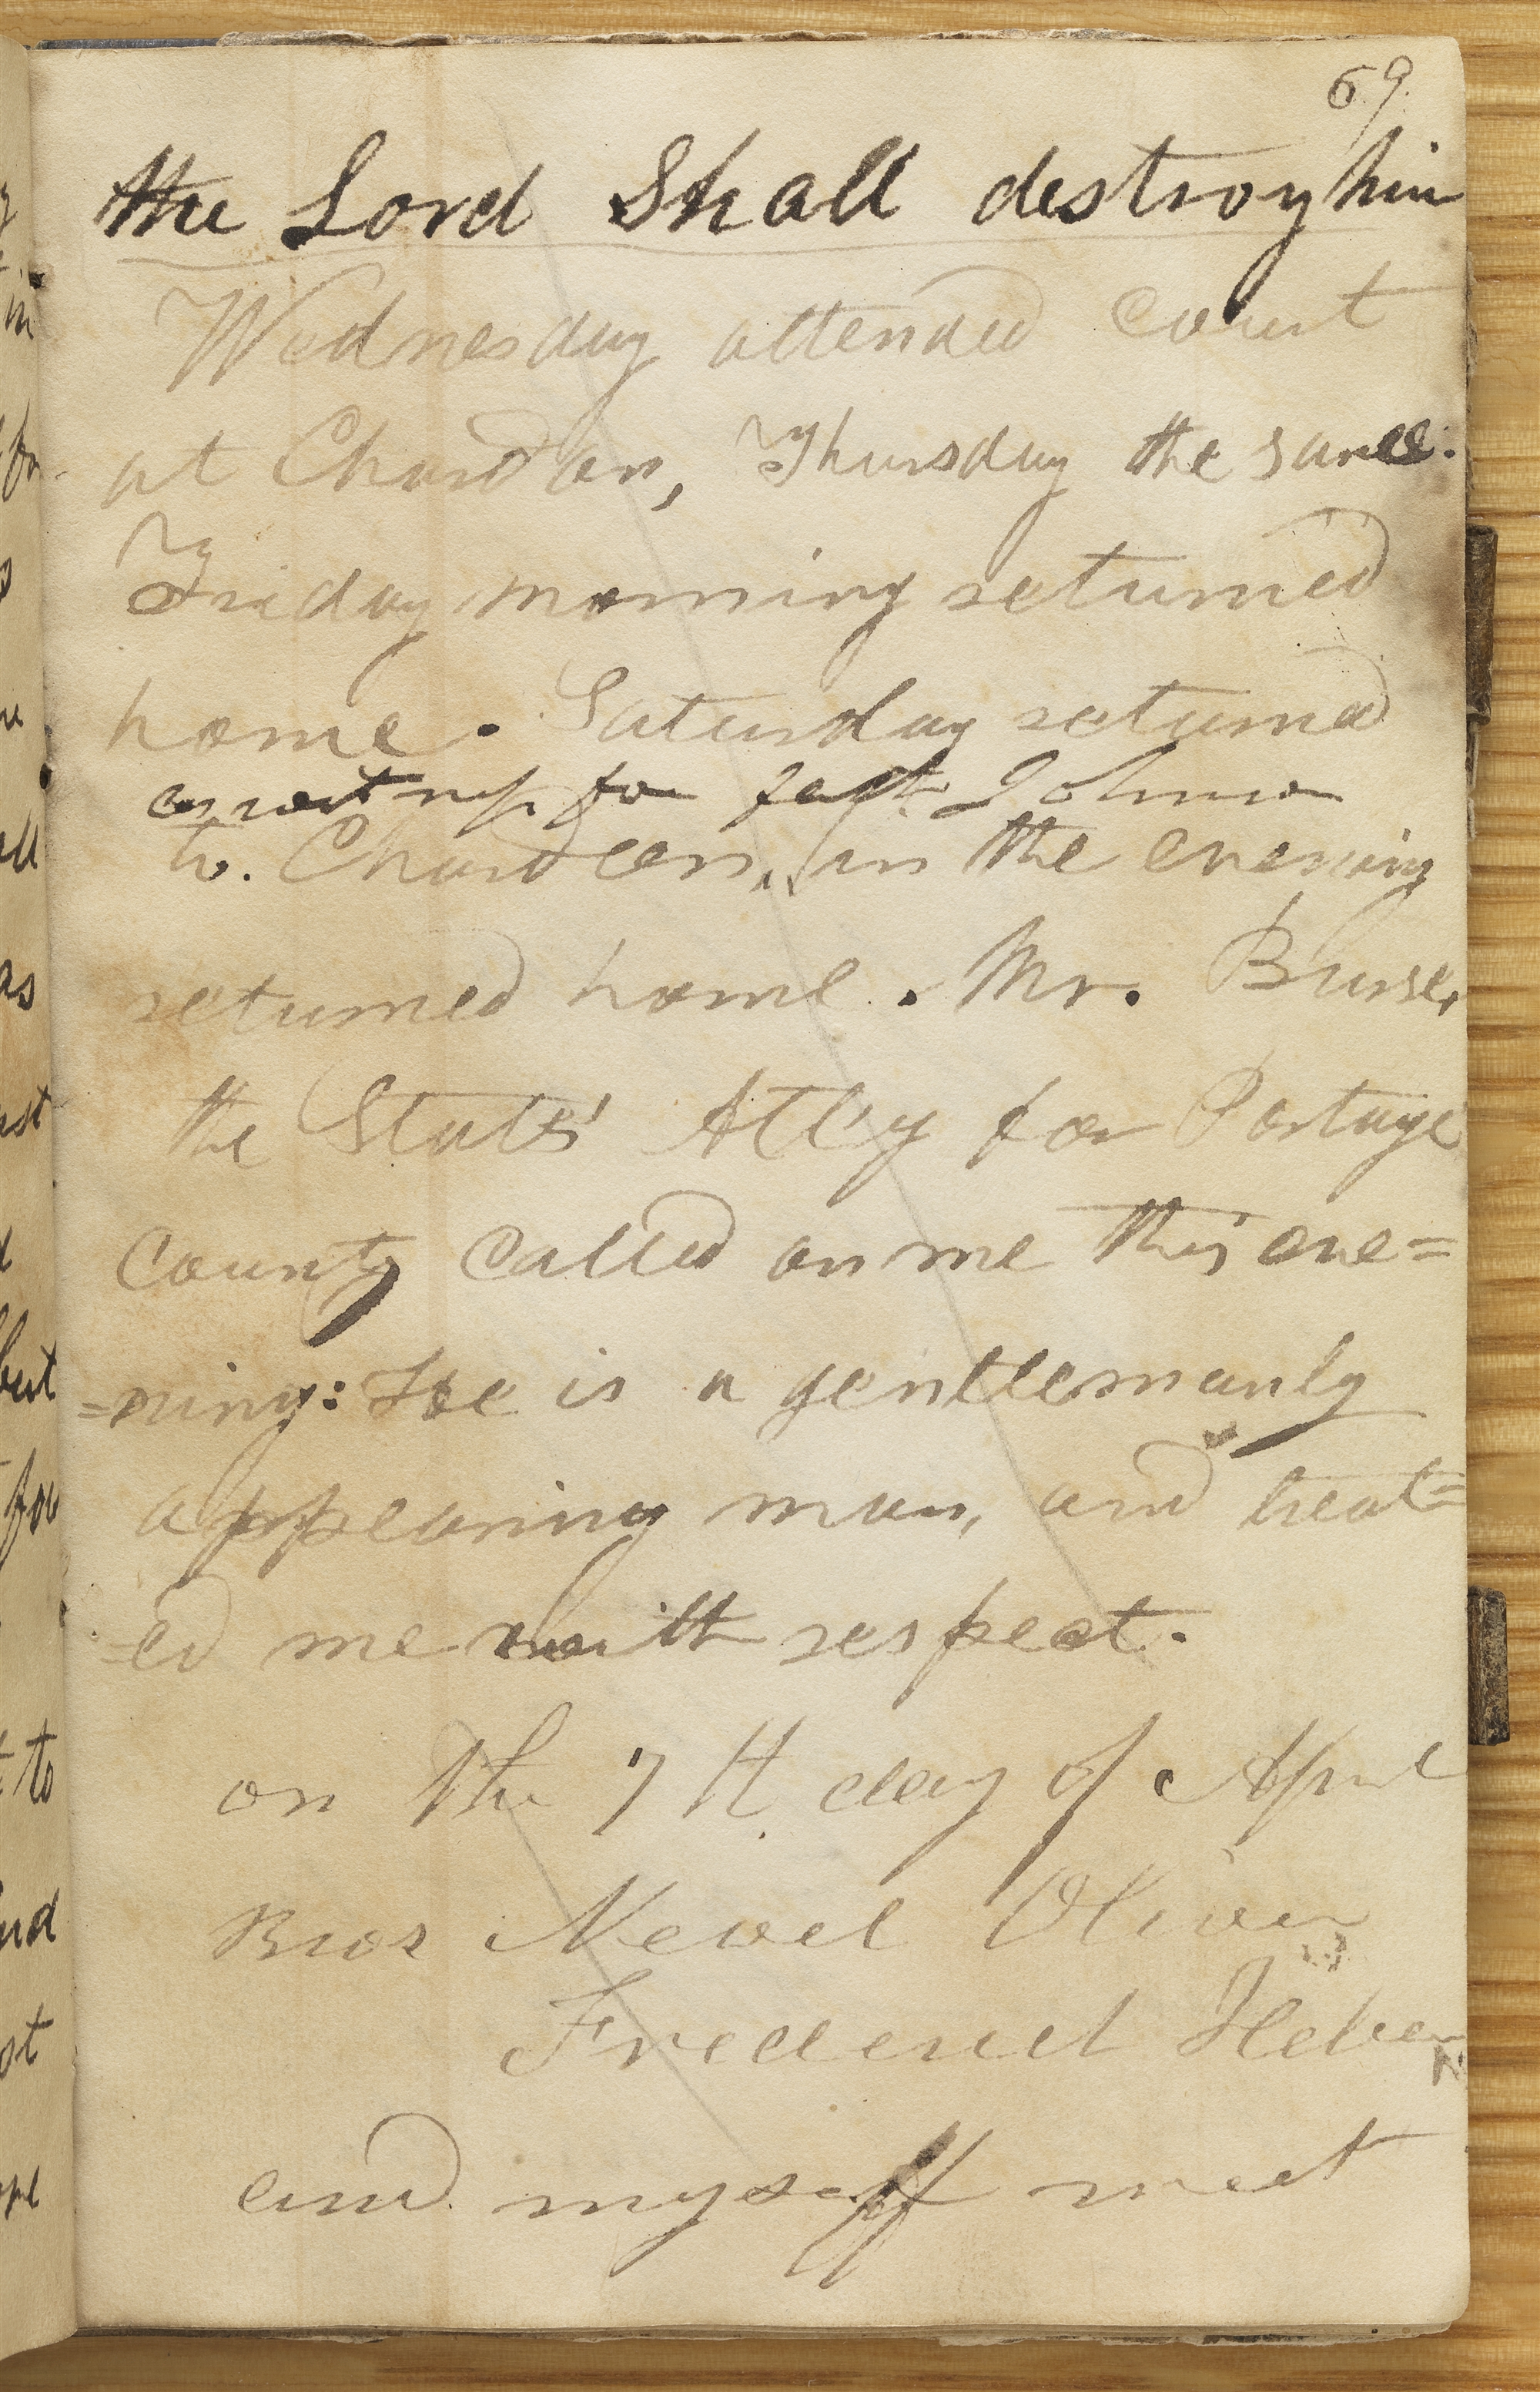 69
the Lord Shall destroy him
Wednesday attended court
at Chardon, Thursday the same.
Friday morning returned
home. Saturday returned
to Chardeon, in the evening
returned home. Mr. Bursle,
the States' Att'y for Portage
County called on me this eve=
=ning: He is a gentlemanly
appearing man, and treat=
=ed me with respect.
on the 7th day of April
Bros Newel Oliver
Frederick Heber
and myself meet